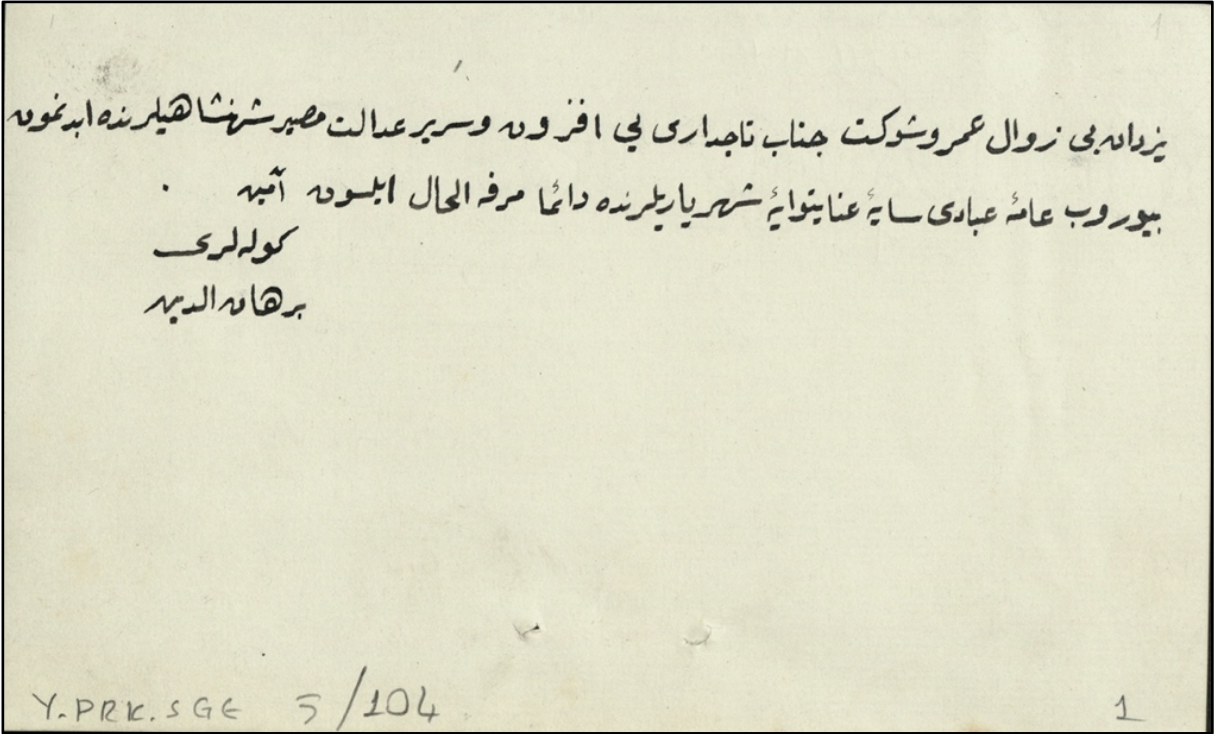 یزدان بی زوال عمر وشوكت جناب تاجداری یی افزون وسریر عدالت مصیر شهنشاهیلرنده ابدنمون
بیوروب عامۀ عبادی سایۀ عنایتوایۀ شهریاریلرنده دائما مرفه الحال ایلسون آمین
كوله لری
برهان الدین
Y.PRK.SGE 5/104
1